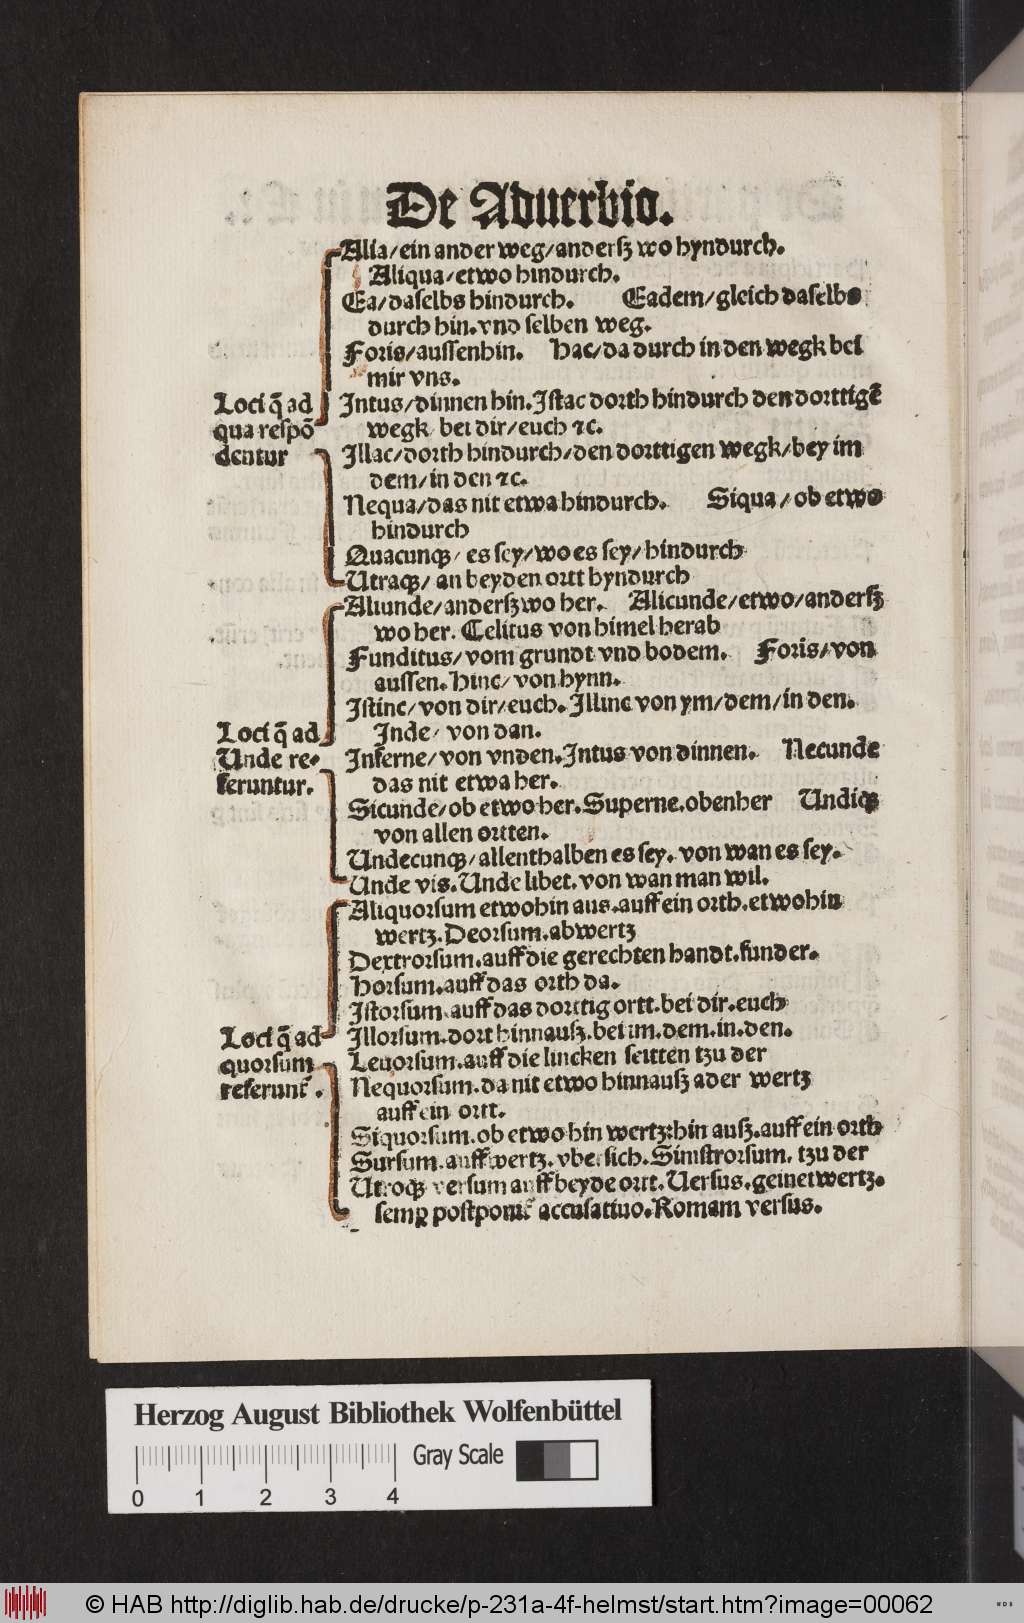 De Aduerbio.
Alia/ein ander weg/anderſz wo hyndurch.
Aliqua/etwo hindurch.
Ea/daſelbs hindurch. Eadem/gleich daſelbs
durch hin.vnd ſelben weg.
Foris/auſſenhin. Hac/da durch in den wegk bei
mir vns.
Loci q̃ ad
qua reſpõ
dentur
Intus/dinnen hin.Iſtac dorth hindurch den dorttigẽ
wegk bei dir/euch ⁊c.
Illac/dorth hindurch/den dorttigen wegk/bey im
dem/in den ⁊c.
Nequa/das nit etwa hindurch. Siqua/ob etwo
hindurch
Quacunqꝫ/ es ſey/wo es ſey/hindurch
Utraqꝫ/ an beyden ortt hyndurch
Aliunde/anderſz wo her. Alicunde/etwo/anderſz
wo her. Celitus von himel herab
Funditus/vom grundt vnd bodem. Foris/von
auſſen.Hinc/von hynn.
Iſtinc/von dir/euch.Illinc von ym/dem/in den.
Loci q̃ ad
Unde re-
feruntur.
Inde/ von dan.
Inferne/von vnden.Intus von dinnen. Necunde
das nit etwa her.
Sicunde/ob etwo her.Superne.obenher Undiqꝫ
von allen ortten.
Undecunqꝫ/allenthalben es ſey. von wan es ſey.
Unde vis.Unde libet.von wan man wil.
Aliquorſum etwohin aus.auff ein orth.etwohin
wertz.Deorſum.abwertz
Dextrorſum.auff die gerechten handt.ſunder.
Horſum.auff das orth da.
Iſtorſum.auff das dorttig ortt.bei dir.euch
Loci q̃ ad
quorſum
referunt᷑.
Illorſum.dort hinnauſz.bei im.dem.in.den.
Leuorſum.auff die lincken ſeitten tzu der
Nequorſum.da nit etwo hinnauſz ader wertz
auff ein ortt.
Siquorſum.ob etwo hin wertz:hin auſz.auff ein orth
Surſum.auffwertz.vberſich.Siniſtrorſum. tzu der
Utroqꝫ verſum auff beyde ortt.Uerſus.geinetwertz.
ſemꝑ poſtponit᷑ accuſatiuo.Romam verſus.
Herzog August Bibliothek Wolfenbüttel
Gray Scale
0 1 2 3 4
© HAB http://diglib.hab.de/drucke/p-231a-4f-helmst/start.htm?image=00062
WDB